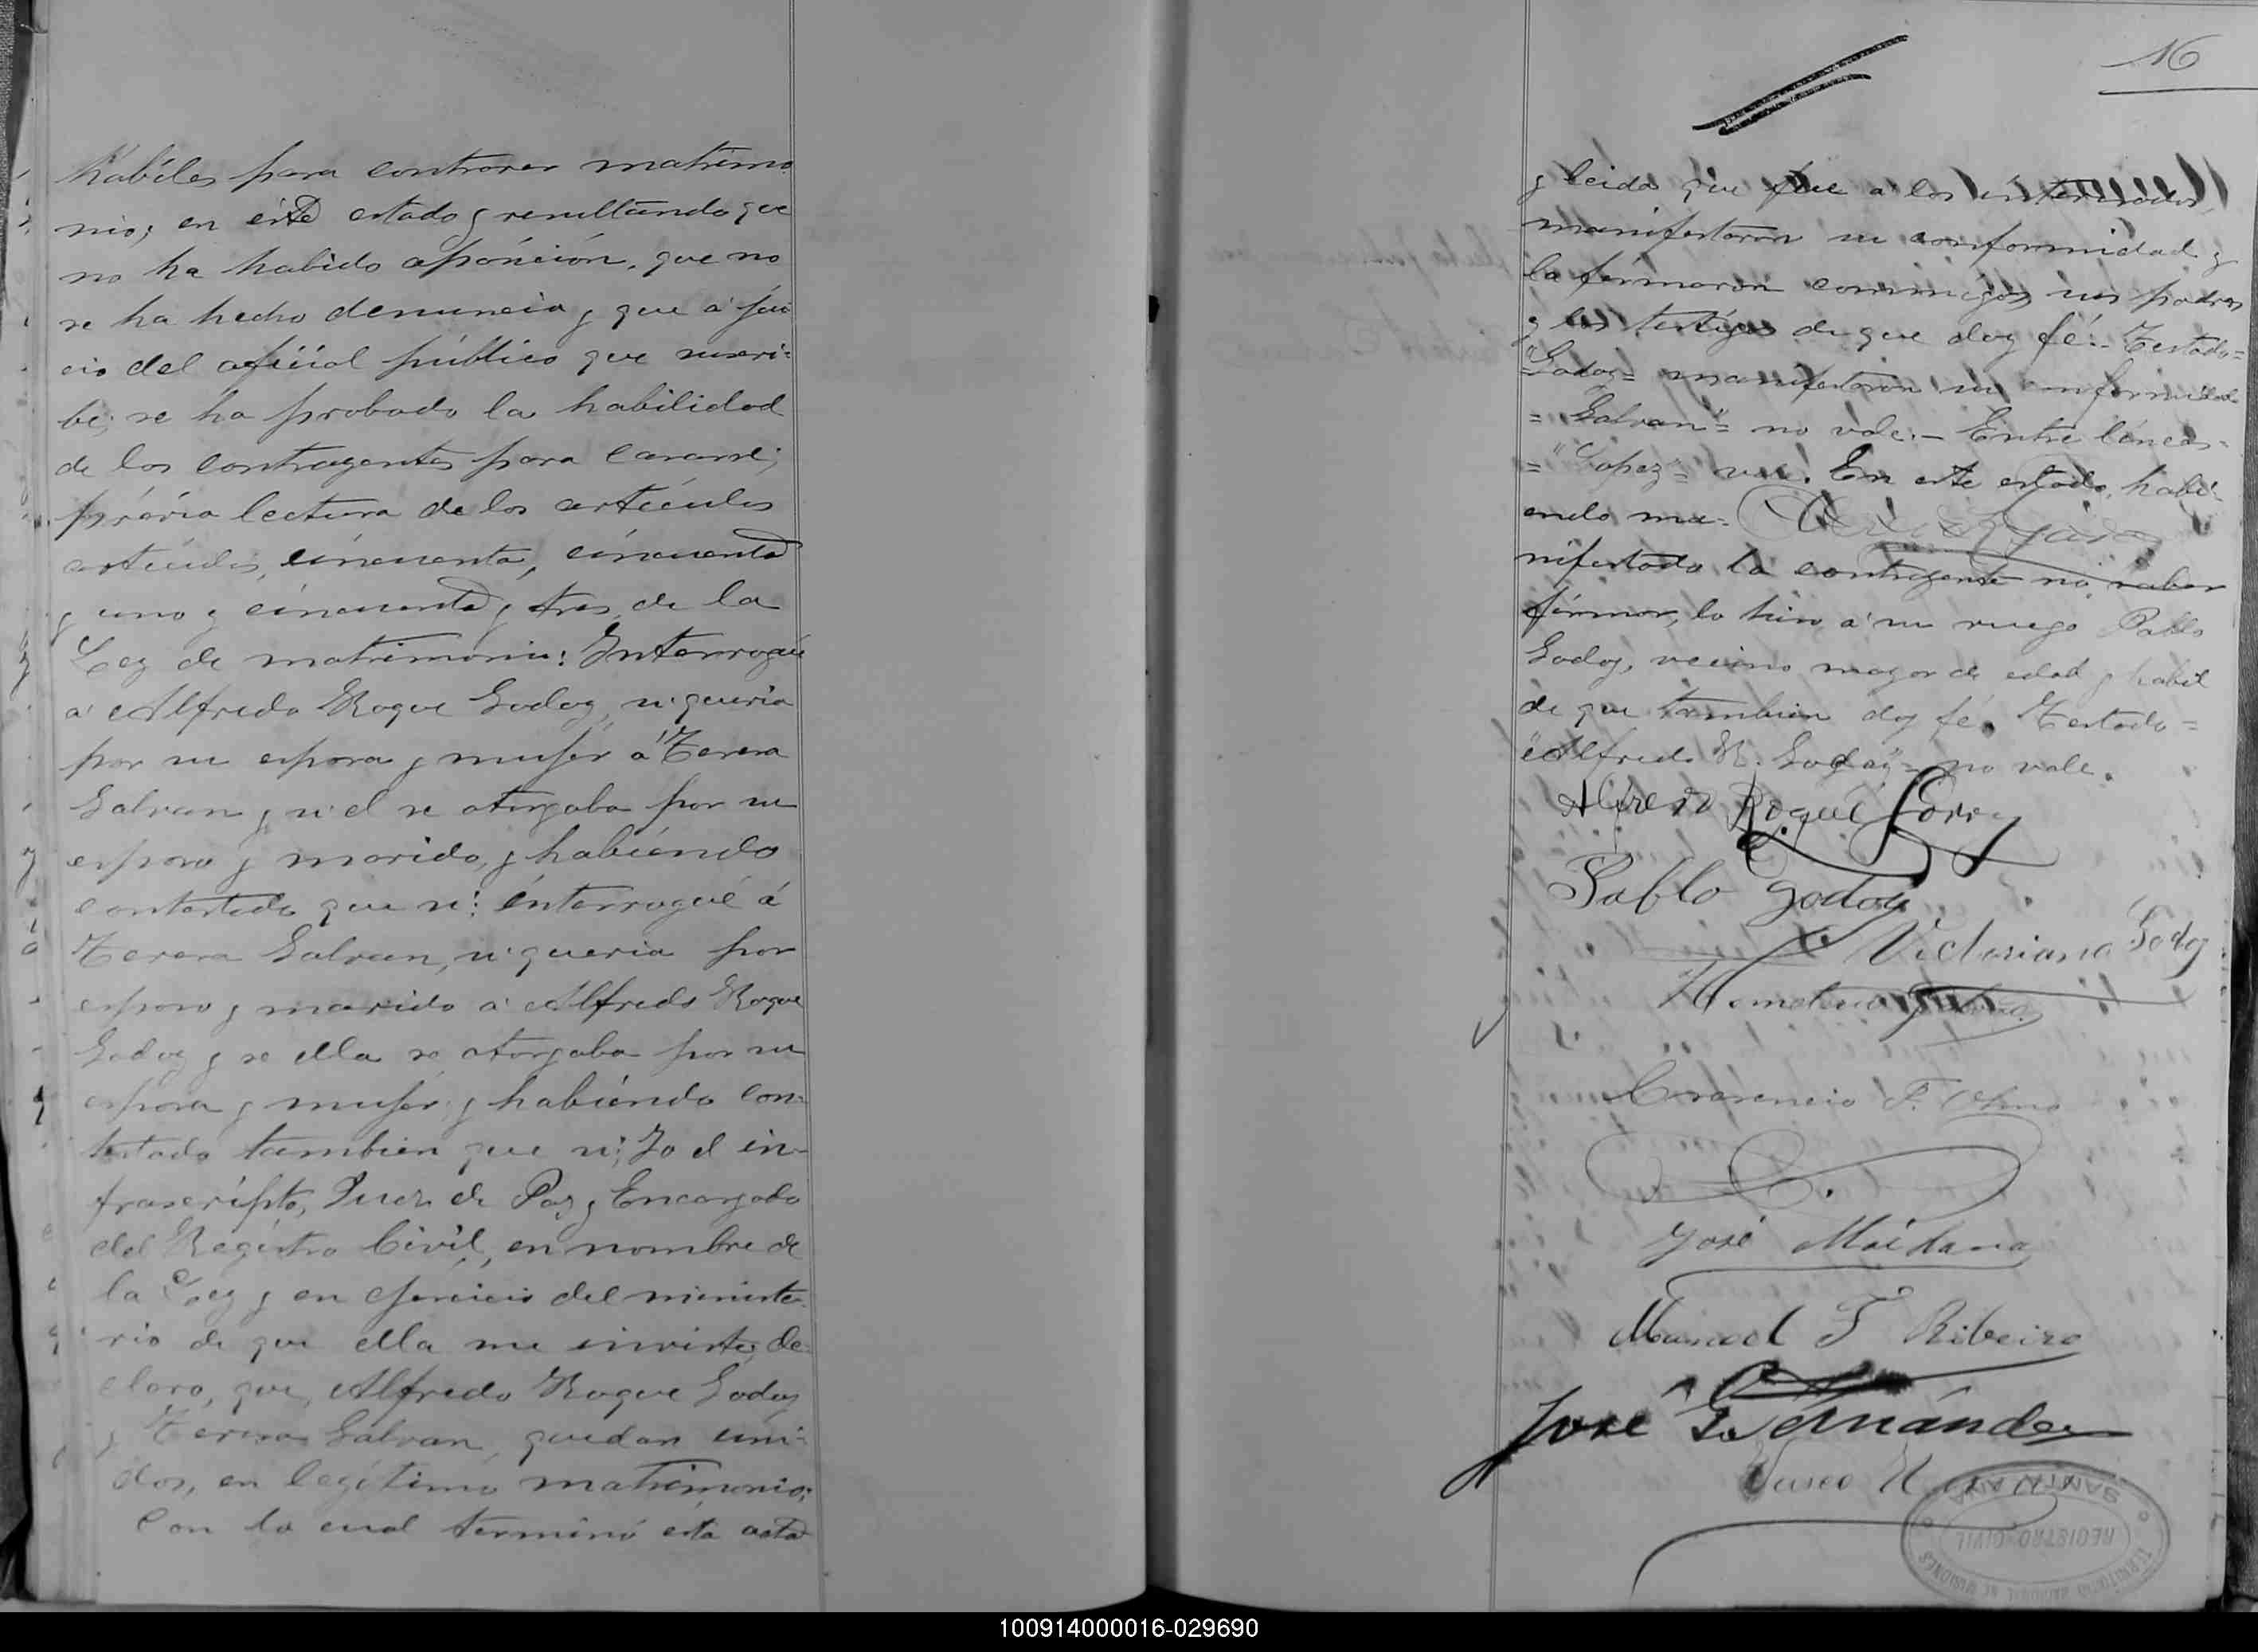 habiles para contraer matrimo
nio; en este estado y resultando que
no ha habido oposición, que no
se ha hecho denuncia y que a jui
cio del oficial público que suscri=
be; se ha probado la habilidad
de los contrayentes para casarse;
prévia lectura de los artículos
artículos, cincuenta, cincuenta
y uno y cincuenta y tres de la
Ley de matrimonio: Interrogué
a Alfredo Roque Godoy, si queria
por su esposa y mujer á Teresa
Galvan y si el se otorgaba por su
esposo y marido, y habiendo
contestado que si: interrogué á
Teresa Galvan, si queria por
esposo y marido a Alfredo Roque
Godoy y se ella se otorgaba por su
esposa y mujer y habiendo con=
testado tambien que si; Yo el in-
frascripto, Juez de Paz y Encargado
del Registro Civil, en nombre de
la Ley y en ejercicio del ministe-
rio de que ella me inviste, de-
claro, que, Alfredo Roque Godoy
y Teresa Galvan, quedan uni-
dos, en legítimo matrimonio;
Con lo cual terminó esta acta
16
y leida que fue a los interesados,
manifestaron su conformidad y
la firmaron conmigo, sus padres
y los testigos de que doy fé.- Testado=
"Godoy= manifestaron su conformidad
="Galvan"= no vale.- Entre líneas-
="Lopez"= vale. En este estado, habi-
endo ma-
nifestado la contrayente no saber
firmar, lo hizo a su ruego Pablo
Godoy, vecino mayor de edad y habil
de que tambien doy fé. Testado=
"Alfredo R. Godoy"= no vale.
Alfredo Roque Godoy
Pablo Godoy
Victoriano Godoy
José Maidana
Manuel F Ribeiro
José G. Fernández
SANTA ANA
REGISTRO CIVIL
TERRITORIO NACIONAL DE MISIONES
100914000016-029690